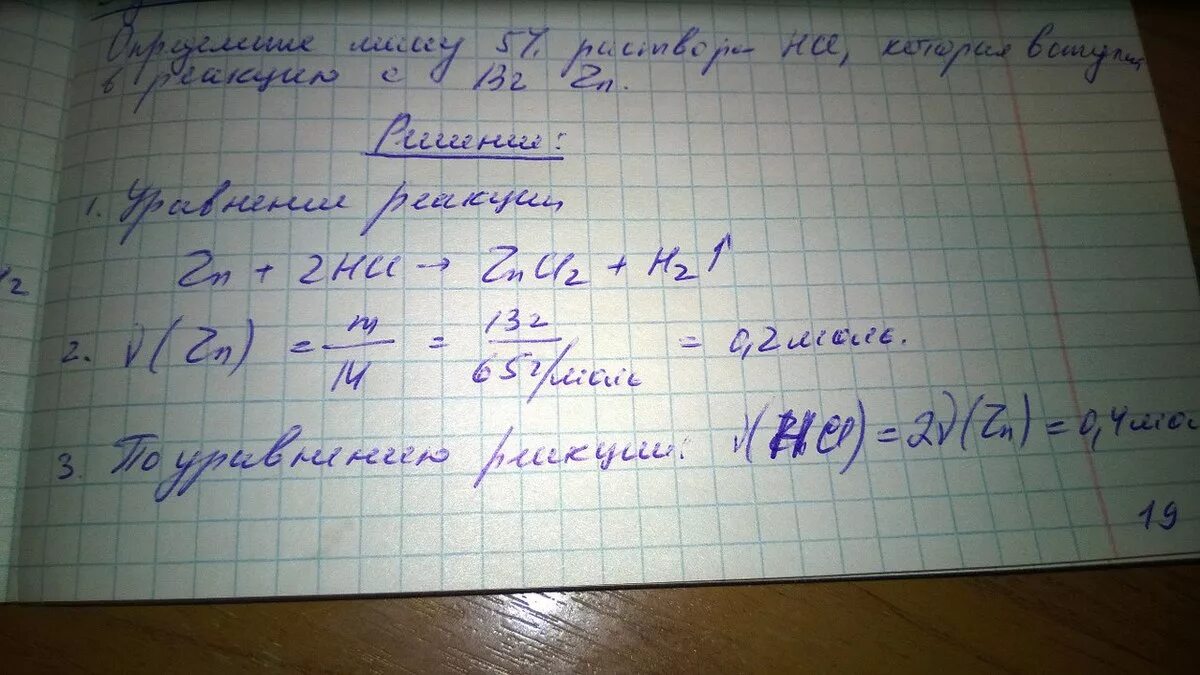 Определите массу 5% раствора HCl, которая вступит
в реакцию с 13г Zn.
Решение:
1. Уравнение реакции
Zn + 2HCl → ZnCl2 + H2↑
2. ν(Zn) = m/M = 13г/65г/моль = 0,2 моль.
3. По уравнению реакции: ν(HCl) = 2ν(Zn) = 0,4 мол
19